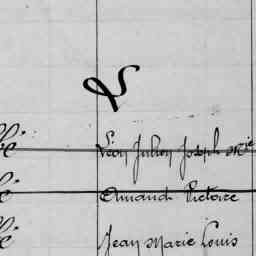 L
Léon Julien Joseph Mie
Amand Victoire
Jean Marie Louis